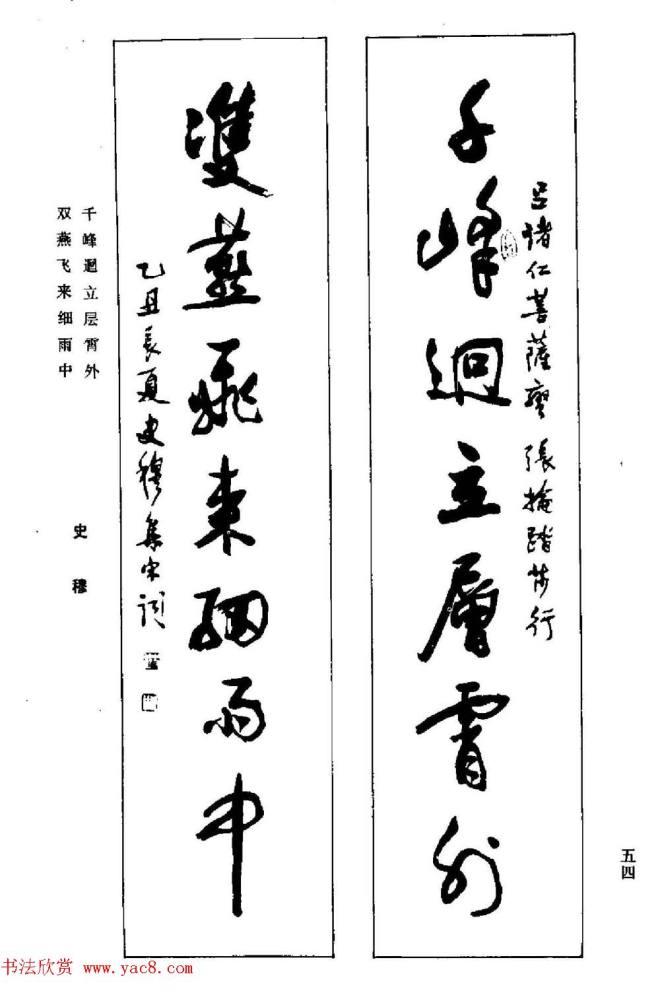 千峰迥立層霄外
呂渚仁菩薩蠻 張掄踏莎行
雙燕飛來細雨中
乙丑長夏史穆集宋詞
千峰迥立层霄外
双燕飞来细雨中
史穆
五四
书法欣赏 www.yac8.com